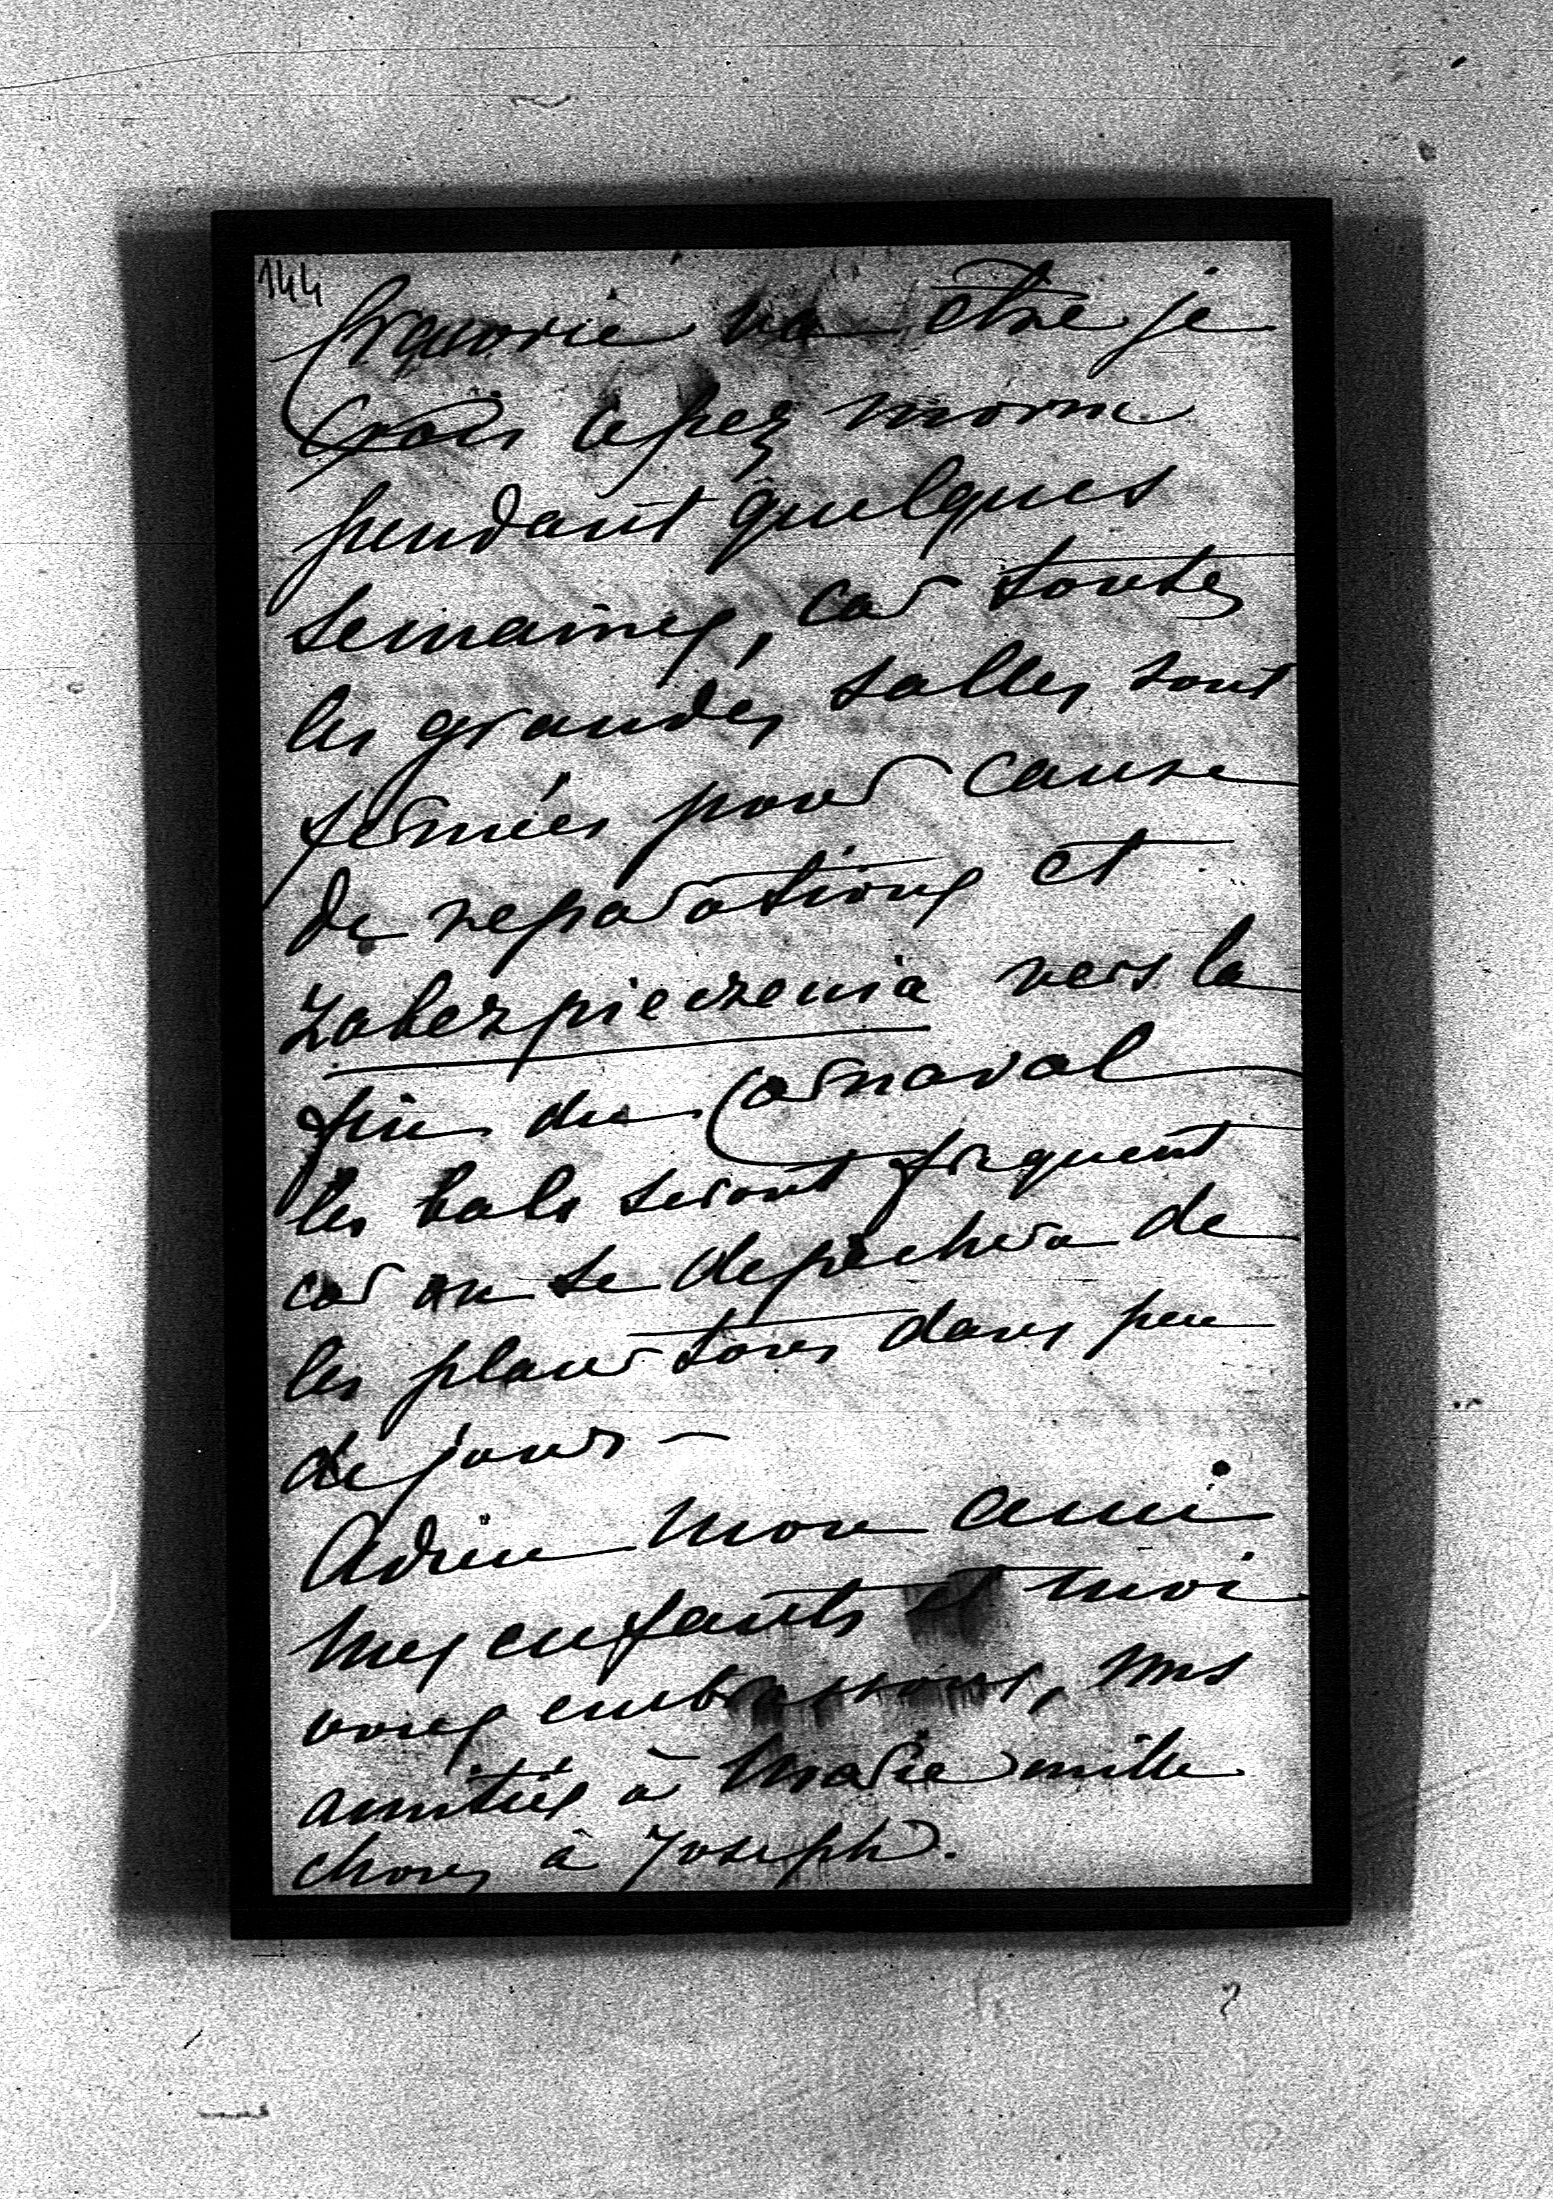 144
Cracovie va être je
crois assez morne
pendant quelques
semaines, car toutes
les grandes salles sont
fermées pour cause
de reparations et
zabezpieczenia vers la
fin du Carnaval
les bals seront frequent
car on se depechera de
les placer tous dans peu
de jours —
Adieu mon ami
mes enfants et moi
vous embrassons, mes
amitiés à Marie mille
choses à Joseph.